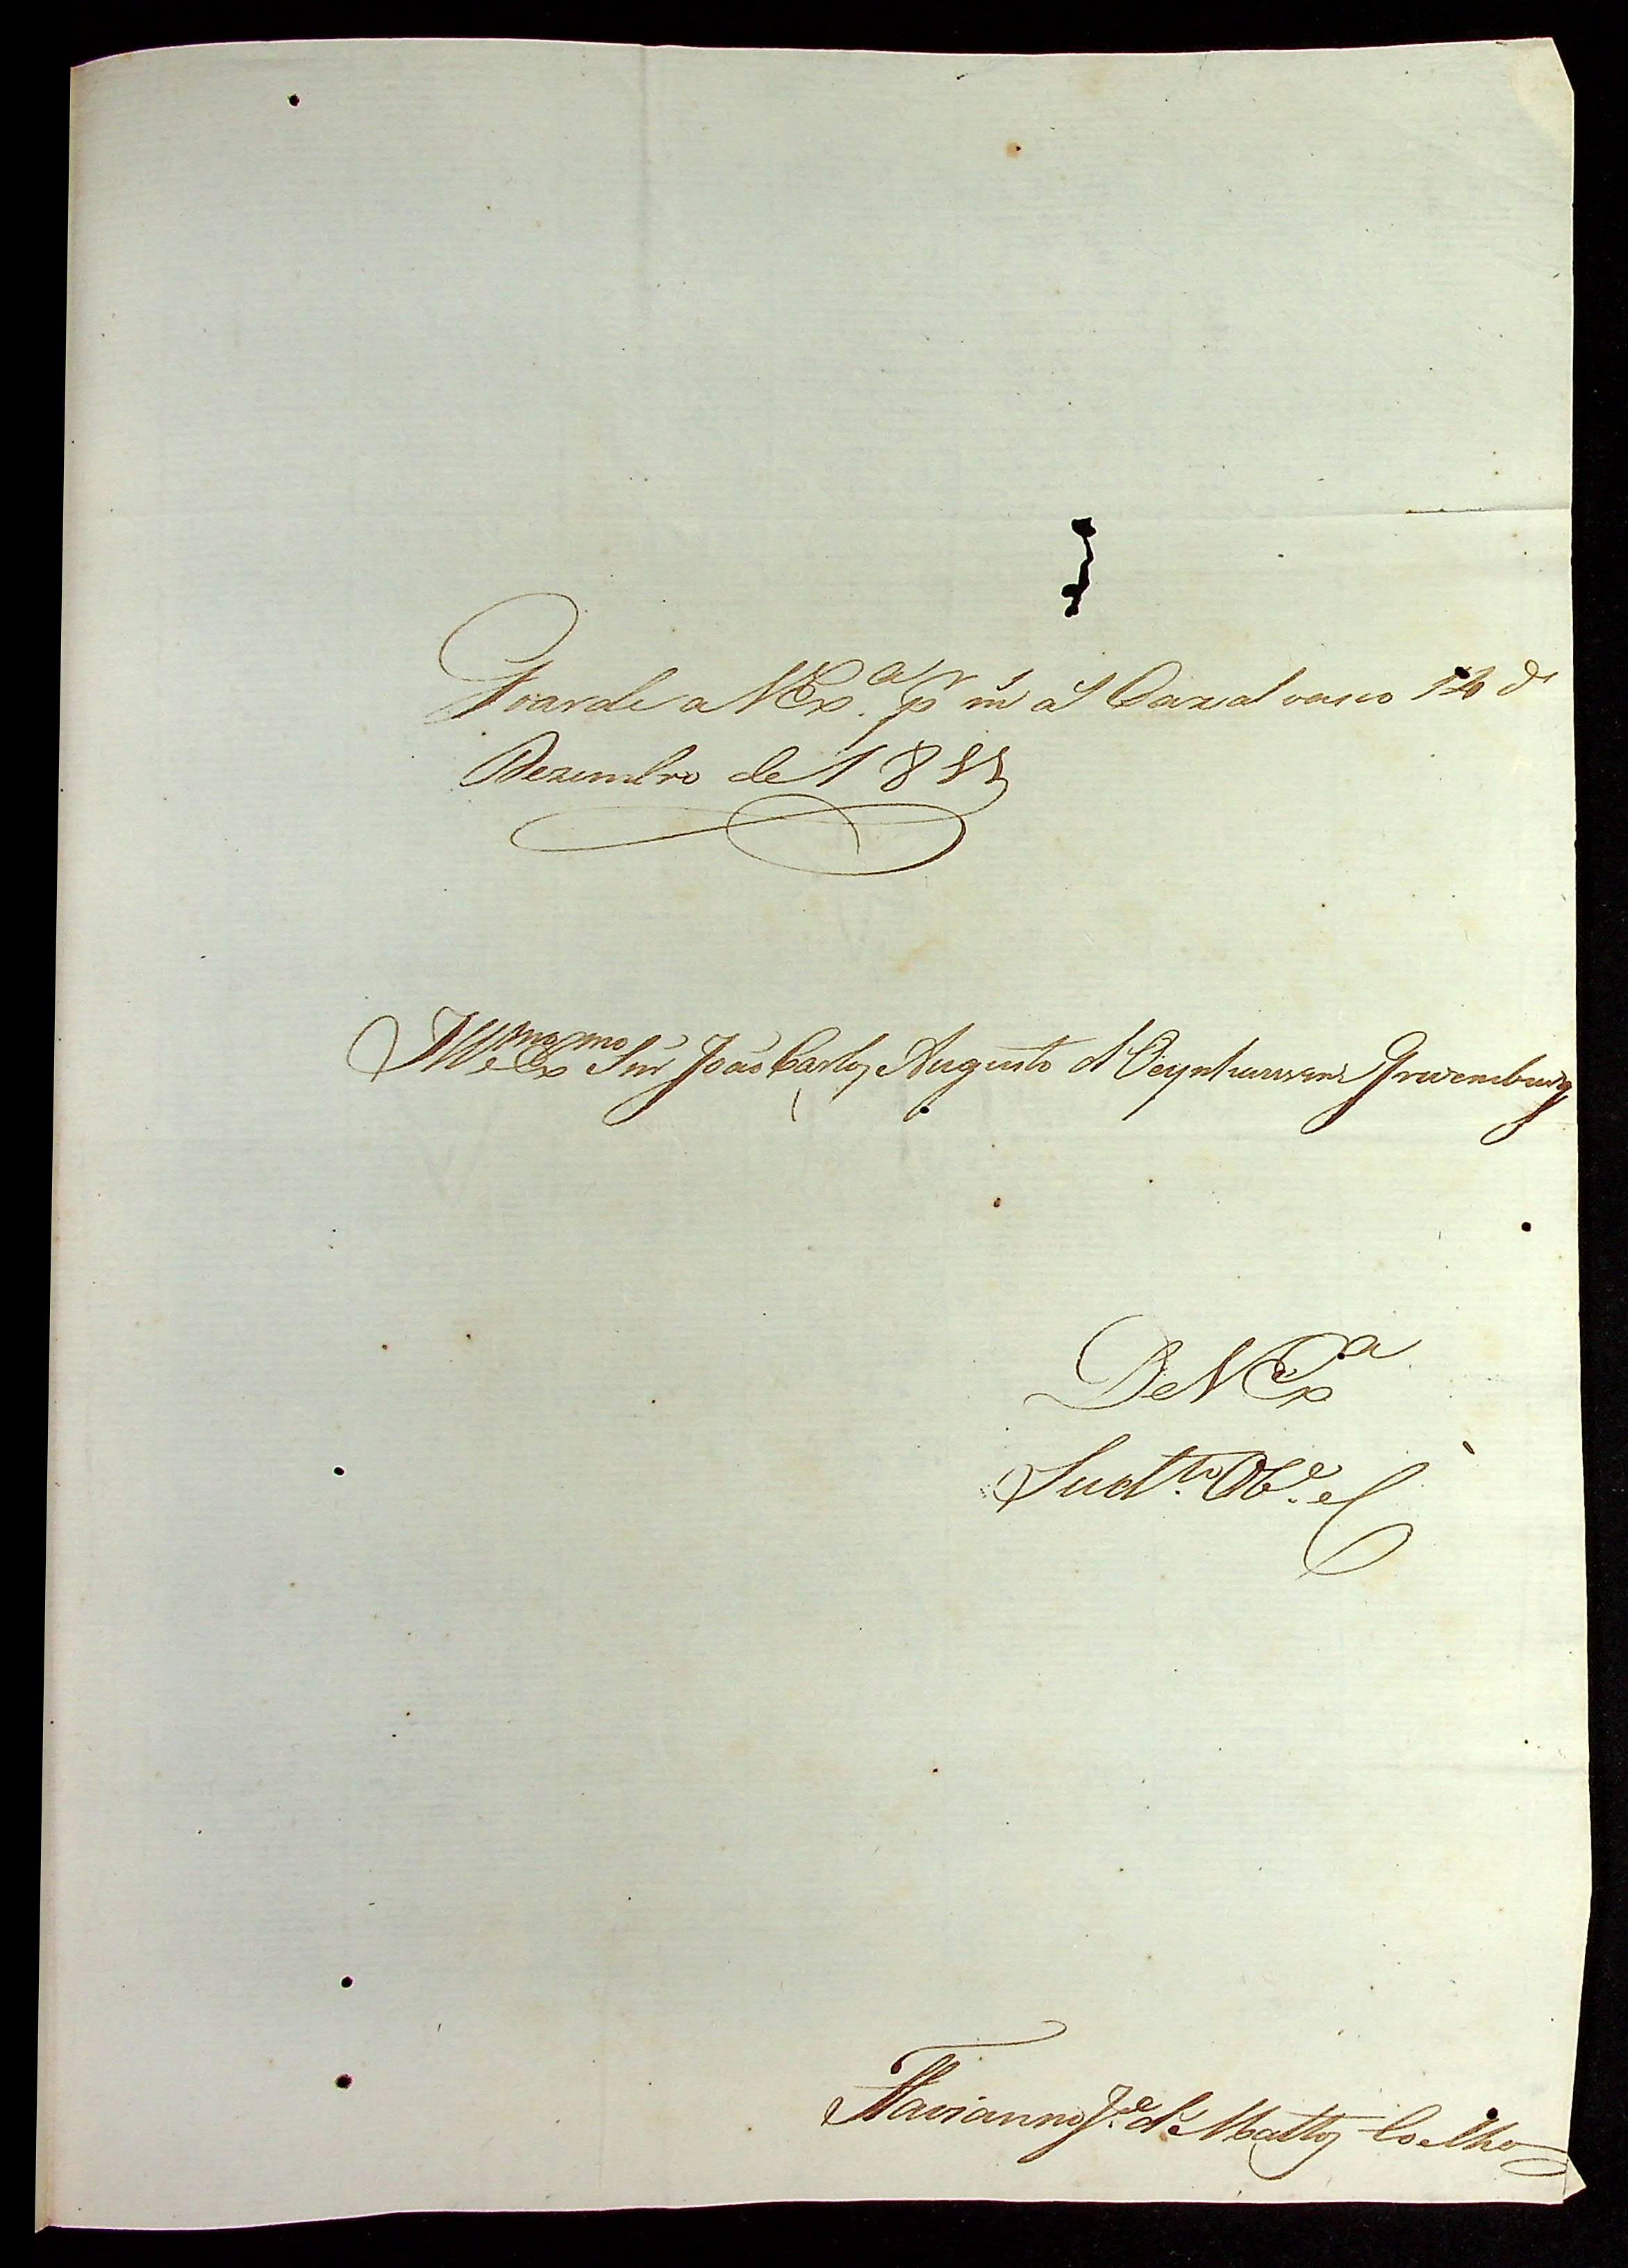 Guarde a VEx.ª p.r m.s a.s Cazal vasco 10 de
Dezembro de 1811
Ill.mo e Ex.mo Snr João Carlos Augusto d'Oeynhausen Grevemburg
De V Ex.ª
Subd.to Ob.e C
Flavianno J.e de Mattos Coelho